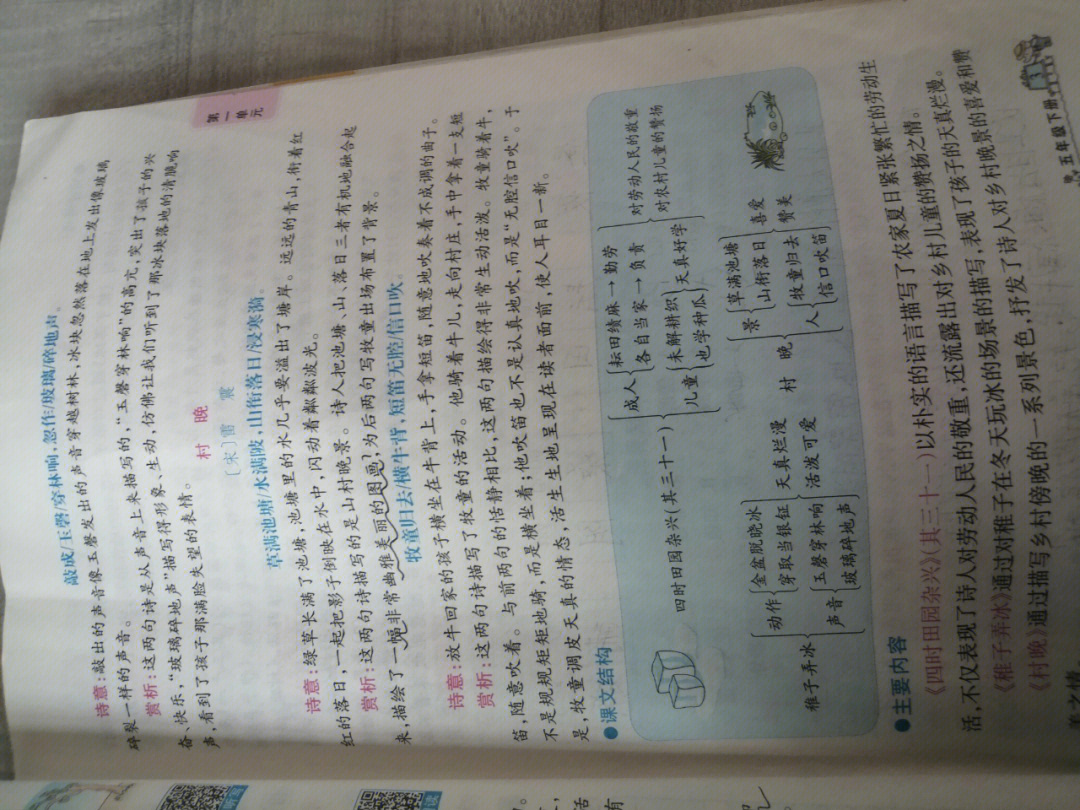 第一
单元
敲成/玉磬/穿林响,忽作/玻璃/碎地声。
诗意:敲出的声音像玉磬发出的声音穿越树林,冰块忽然落在地上发出像玻璃
碎裂一样的声音。
赏析:这两句诗是从声音上来描写的,“玉磬穿林响”的高亢,突出了孩子的兴
奋、快乐,“玻璃碎地声”描写得形象、生动,仿佛让我们听到了那冰块落地的清脆响
声,看到了孩子那满脸失望的表情。
村 晚
〔宋〕雷 震
草满池塘/水满陂,山衔落日/浸寒漪。
诗意:绿草长满了池塘,池塘里的水几乎要溢出了塘岸。远远的青山,衔着红
红的落日,一起把影子倒映在水中,闪动着粼粼波光。
赏析:这两句诗描写的是山村晚景。诗人把池塘、山、落日三者有机地融合起
来,描绘了一幅非常幽雅美丽的图画,为后两句写牧童出场布置了背景。
牧童归去/横牛背,短笛无腔/信口吹。
诗意:放牛回家的孩子横坐在牛背上,手拿短笛,随意地吹奏着不成调的曲子。
赏析:这两句诗描写了牧童的活动。他骑着牛儿,走向村庄,手中拿着一支短
笛,随意吹着。与前两句的恬静相比,这两句描绘得非常生动活泼。牧童骑着牛,
不是规规矩矩地骑,而是横坐着;他吹笛也不是认真地吹,而是“无腔信口吹”。于
是,牧童调皮天真的情态,活生生地呈现在读者面前,使人耳目一新。
●课文结构
四时田园杂兴(其三十一)
成人
耘田绩麻→勤劳
各自当家→负责
儿童
未解耕织
也学种瓜
天真好学
对劳动人民的敬重
对农村儿童的赞扬
稚子弄冰
动作
金盆脱晓冰
穿取当银钲
声音
玉磬穿林响
玻璃碎地声
天真烂漫
活泼可爱
村 晚
景
草满池塘
山衔落日
人
牧童归去
信口吹笛
喜爱
赞美
●主要内容
《四时田园杂兴》(其三十一)以朴实的语言描写了农家夏日紧张繁忙的劳动生
活,不仅表现了诗人对劳动人民的敬重,还流露出对乡村儿童的赞扬之情。
《稚子弄冰》通过对稚子在冬天玩冰的场景的描写,表现了孩子的天真烂漫。
《村晚》通过描写乡村傍晚的一系列景色,抒发了诗人对乡村晚景的喜爱和赞
美之情
五年级下册